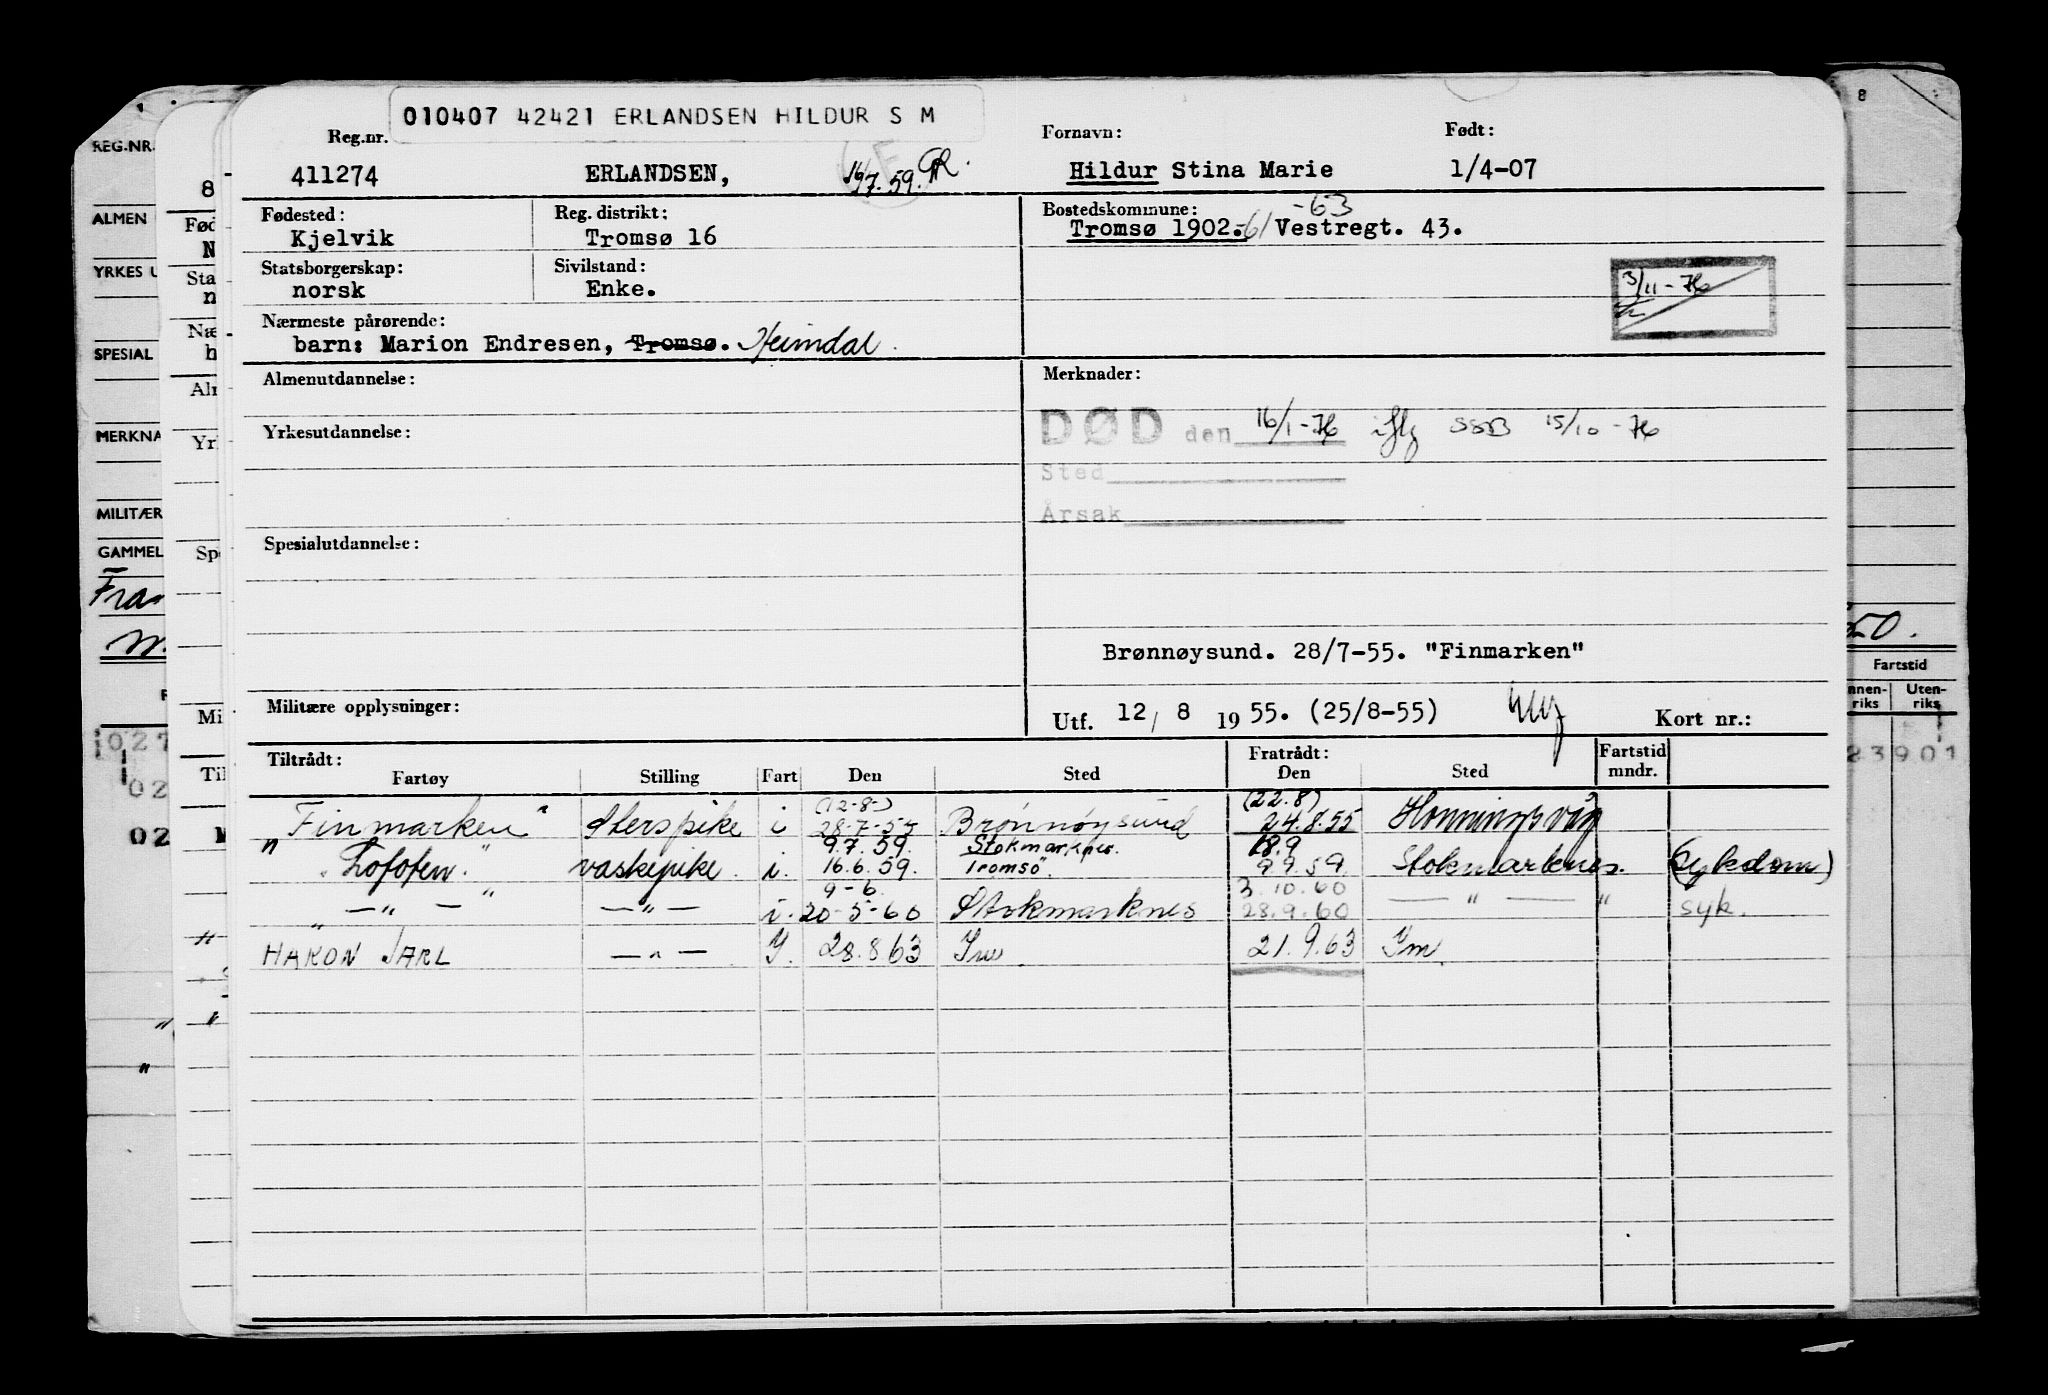 010407 42421 ERLANDSEN HILDUR S M
Reg.nr. Fornavn: Født:
411274 ERLANDSEN, 16/7.59. Hildur Stina Marie 1/4-07
Fødested: Reg. distrikt: Bostedskommune: -63
Kjelvik Tromsø 16 Tromsø 1902.-61 Vestregt. 43.
Statsborgerskap: Sivilstand:
norsk Enke. 3/11-76
Nærmeste pårørende:
barn: Marion Endresen, Tromsø. Heimdal.
Almenutdannelse: Merknader:
Yrkesutdannelse: DØD den 16/1-76 iflg SSB 15/10-76
Sted
Årsak
Spesialutdannelse:
Brønnøysund. 28/7-55. "Finmarken"
Militære opplysninger: Utf. 12/ 8 1955. (25/8-55) Kort nr.:
Tiltrådt: Fratrådt: Fartstid
Fartøy Stilling Fart Den Sted Den Sted mndr.
(12-8-) (22.8)
"Finmarken" Aterspike i 28-7-55 Brønnøysund 24.8.55 Honningsvåg
9.7.59. Stokmarknes. 18.9
"Lofoten." vaskepike. i. 16.6.59. Tromsø 9.9.59. Stokmarknes. (sykdom)
9-6. 3.10.60
" — " — " — " — i. 20-5-60 Stokmarknes 28.9.60 — " — " syk.
HAKON JARL — " — I. 28.8.63 21.9.63
REG.NR.
ALMEN
YRKES U
SPESIAL
MERKNA
MILITÆR
GAMMEL
Fra
027
02
02
8
Fød
N
Sta
n
Næ
h
Alr
Yrl
Spe
Mi
Til
8
50.
Fartstid
nnen- Uten-
riks riks
23901